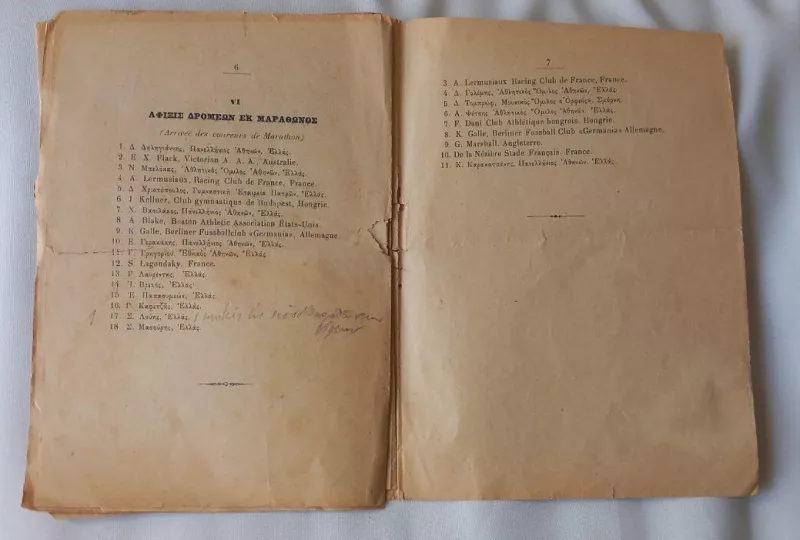 6
VI
ΑΦΙΞΙΣ ΔΡΟΜΕΩΝ ΕΚ ΜΑΡΑΘΩΝΟΣ
(Arrivée des coureurs de Marathon)
1 Δ. Δεληγιάννης, Πανελλήνιος Ἀθηνῶν, Ἑλλάς.
2. E. X. Flack, Victorian A. A. A. Australie.
3 Ν. Μπελόκας, Ἀθλητικὸς Ὅμιλος Ἀθηνῶν, Ἑλλάς.
4 A. Lermusiaux, Racing Club de France, France.
5. Δ. Χριστόπουλος, Γυμναστικὴ Ἑταιρεία Πατρῶν, Ἑλλάς.
6 J. Kellner, Club gymnastique de Budapest, Hongrie.
7 Σ. Βασιλάκος, Πανελλήνιος Ἀθηνῶν, Ἑλλάς.
8 A. Blake, Boston Athletic Association États-Unis.
9 K. Galle, Berliner Fussballclub «Germania», Allemagne
10 Ε. Γερακάκης, Πανελλήνιος Ἀθηνῶν, Ἑλλάς.
11 Γ. Γρηγορίου, Ἐθνικὸς Ἀθηνῶν, Ἑλλάς
12 S. Lagoudaky, France.
13 Γ. Λαυρέντης, Ἑλλάς.
14 Ἰ. Βρετός, Ἑλλάς.
15 Ἐ. Παπασυμεὼν, Ἑλλάς.
16. Γ. Καφετζῆς, Ἑλλάς.
17. Σ. Λούης, Ἑλλάς.
18 Σ. Μασούρης, Ἑλλάς.
7
3 A. Lermusiaux Racing Club de France, France.
4 Δ. Γολέμης, Ἀθλητικὸς Ὅμιλος Ἀθηνῶν, Ἑλλάς.
5 Δ. Τομπρώφ, Μουσικὸς Ὅμιλος «Ὀρφεὺς», Σμύρνη.
6 Α. Φέτσης Ἀθλητικὸς Ὅμιλος Ἀθηνῶν Ἑλλάς.
7 F. Dani Club Athlétique hongrois. Hongrie.
8 K. Galle, Berliner Fussball Club «Germania» Allemagne.
9 G. Marshall, Angleterre.
10 De la Nézière Stade Français. France.
11 Κ. Καρακατσάνης, Πανελλήνιος Ἀθηνῶν. Ἑλλάς.